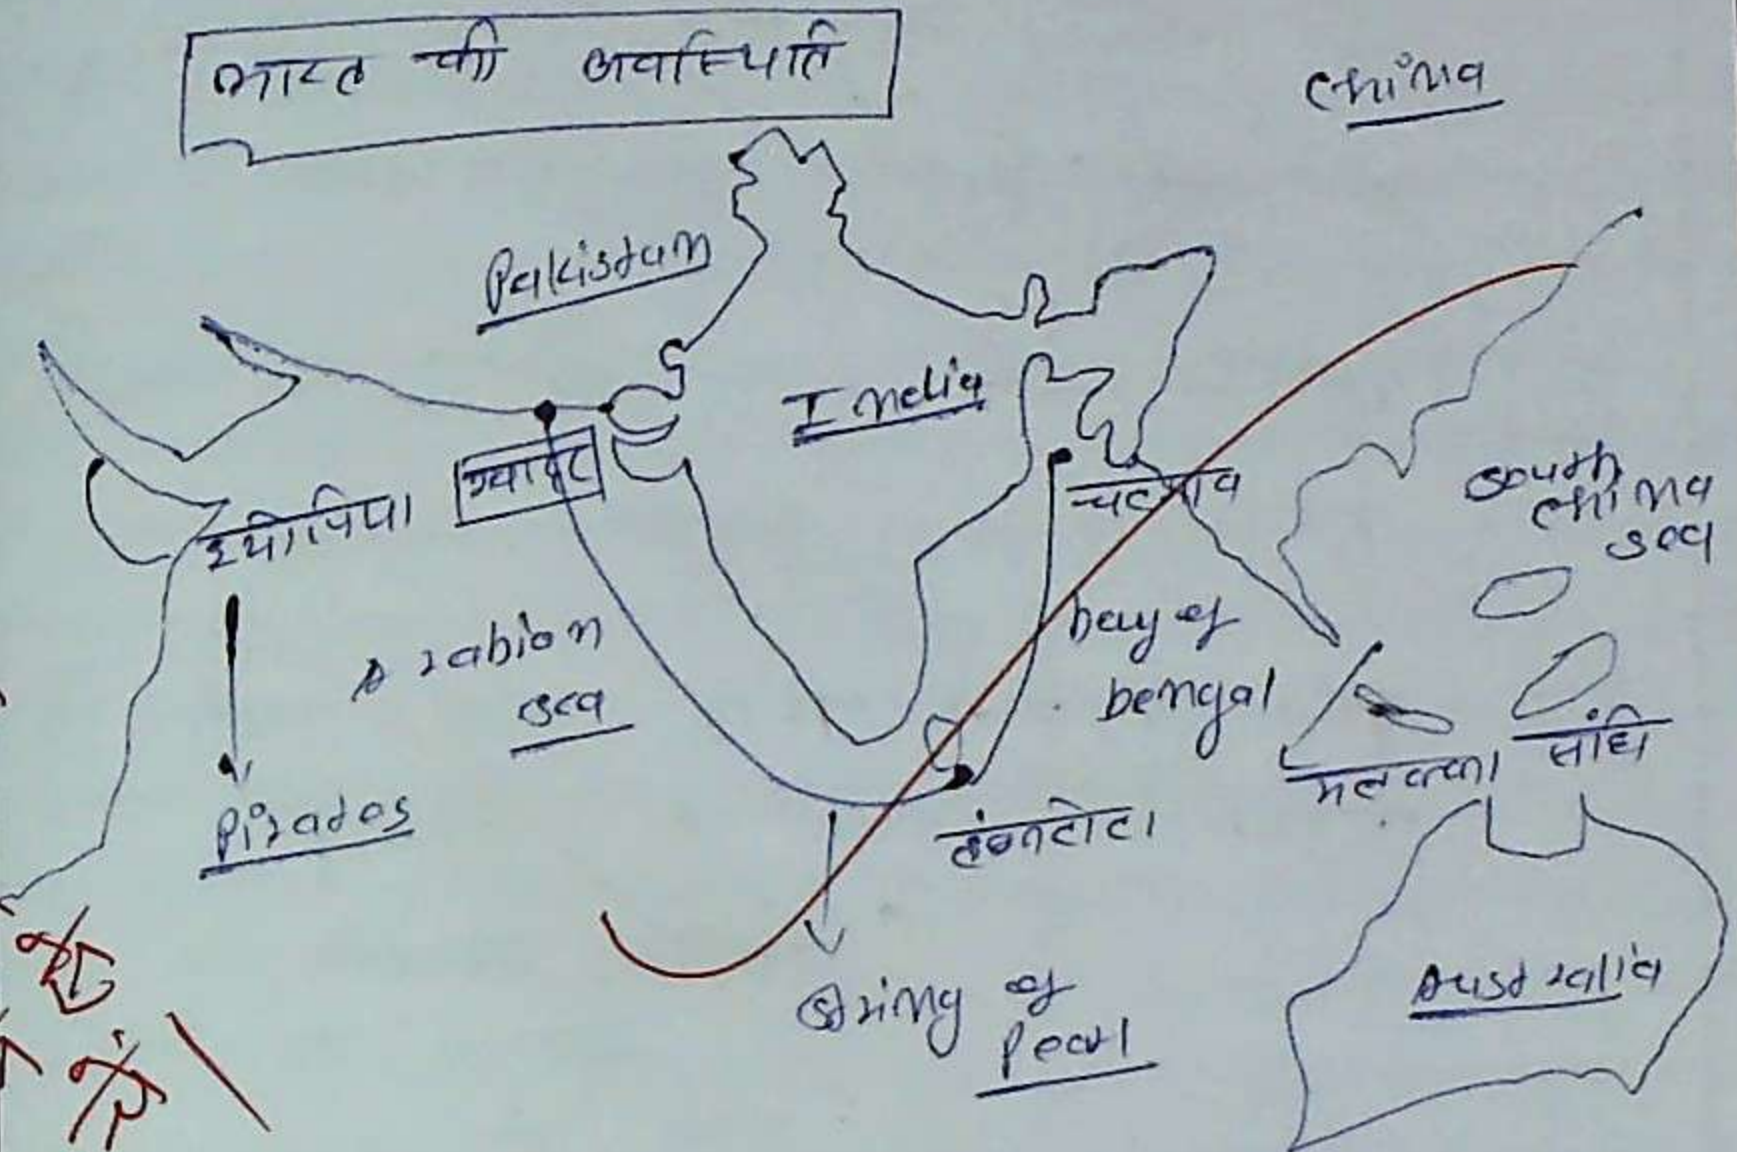 भारत की अवस्थिति
China
Pakistan
India
ग्वादर
इथोपिया
चटगांव
South
China
Sea
Arabian
Sea
bay of
bengal
मलक्का संधि
Pirates
हंबनटोटा
String of
Pearl
Australia